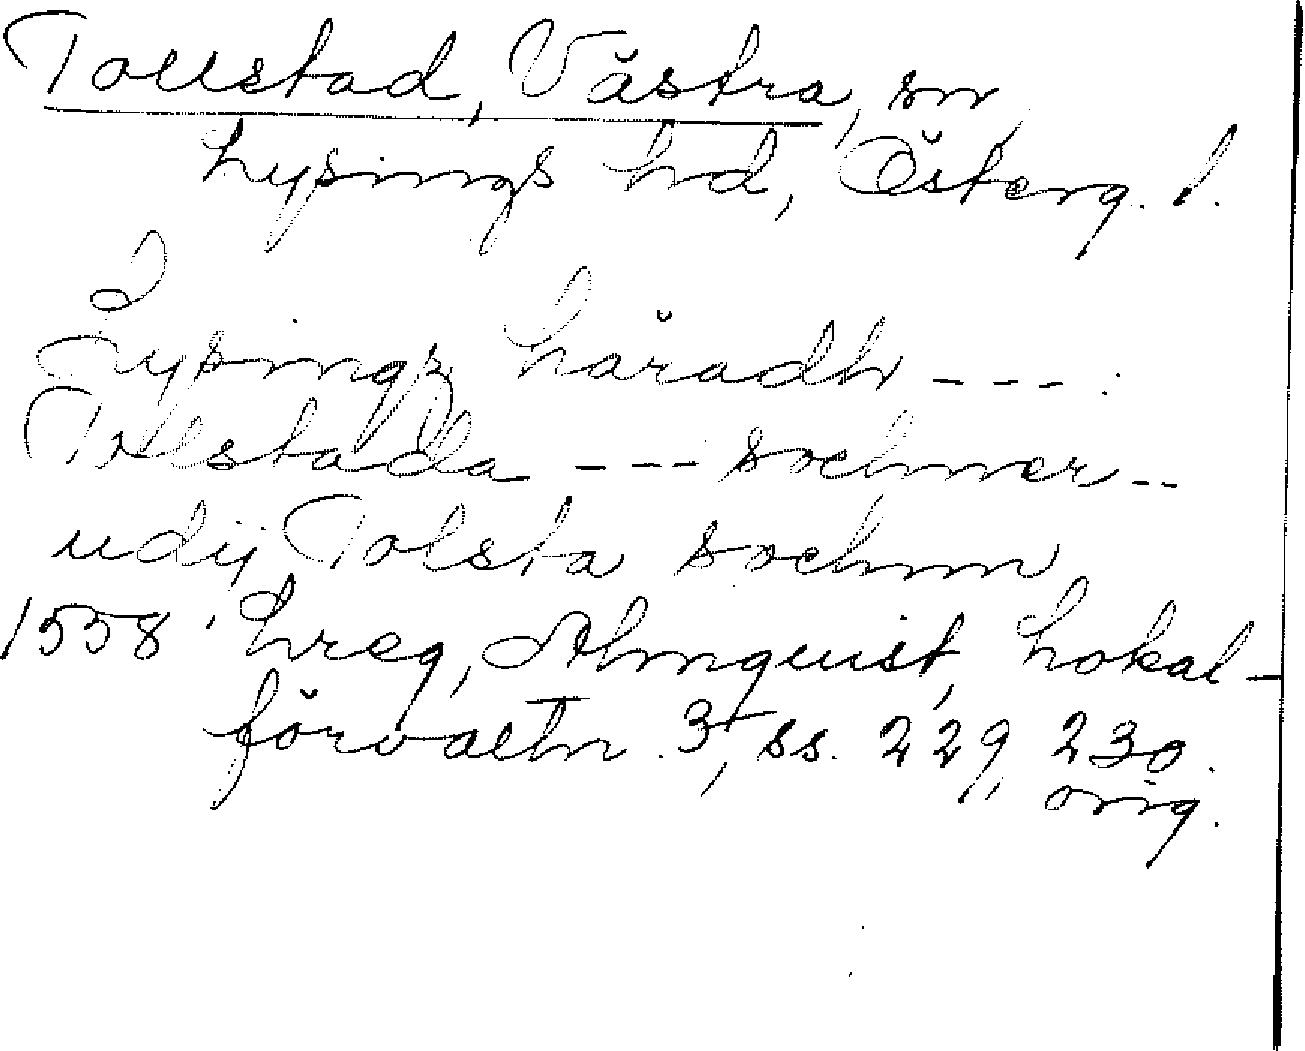 Tollstad, Västra, sn,
Lysings hd, Österg. l.
I
Lysingz häradh ---.:
Tolstada --- sochner --
udij Tolsta sochnn
1558 Lreg, Almquist, Lokal-
förvaltn. 3, ss. 229, 230.
orig.